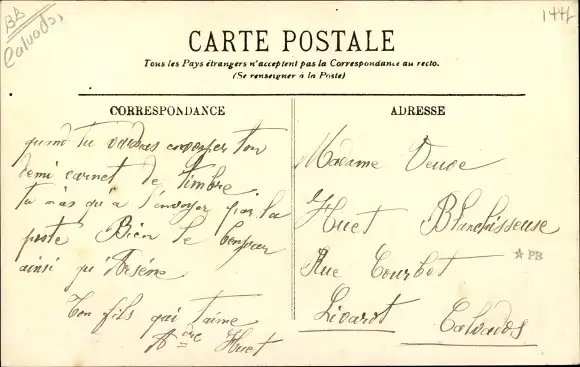 BB
Calvados,
1441
CARTE POSTALE
Tous les Pays étrangers n'acceptent pas la Correspondance au recto.
(Se renseigner à la Poste)
CORRESPONDANCE
ADRESSE
quand tu voudras envoyer ton
demi carnet de timbre
tu n'as qu'a l'envoyer par la
poste Bien le bonjour
ainsi qu'Arsène
Ton fils qui t'aime
Adre Huet
Madame Veuve
Huet Blanchisseuse
Rue Courbet
Livarot Calvados
PB